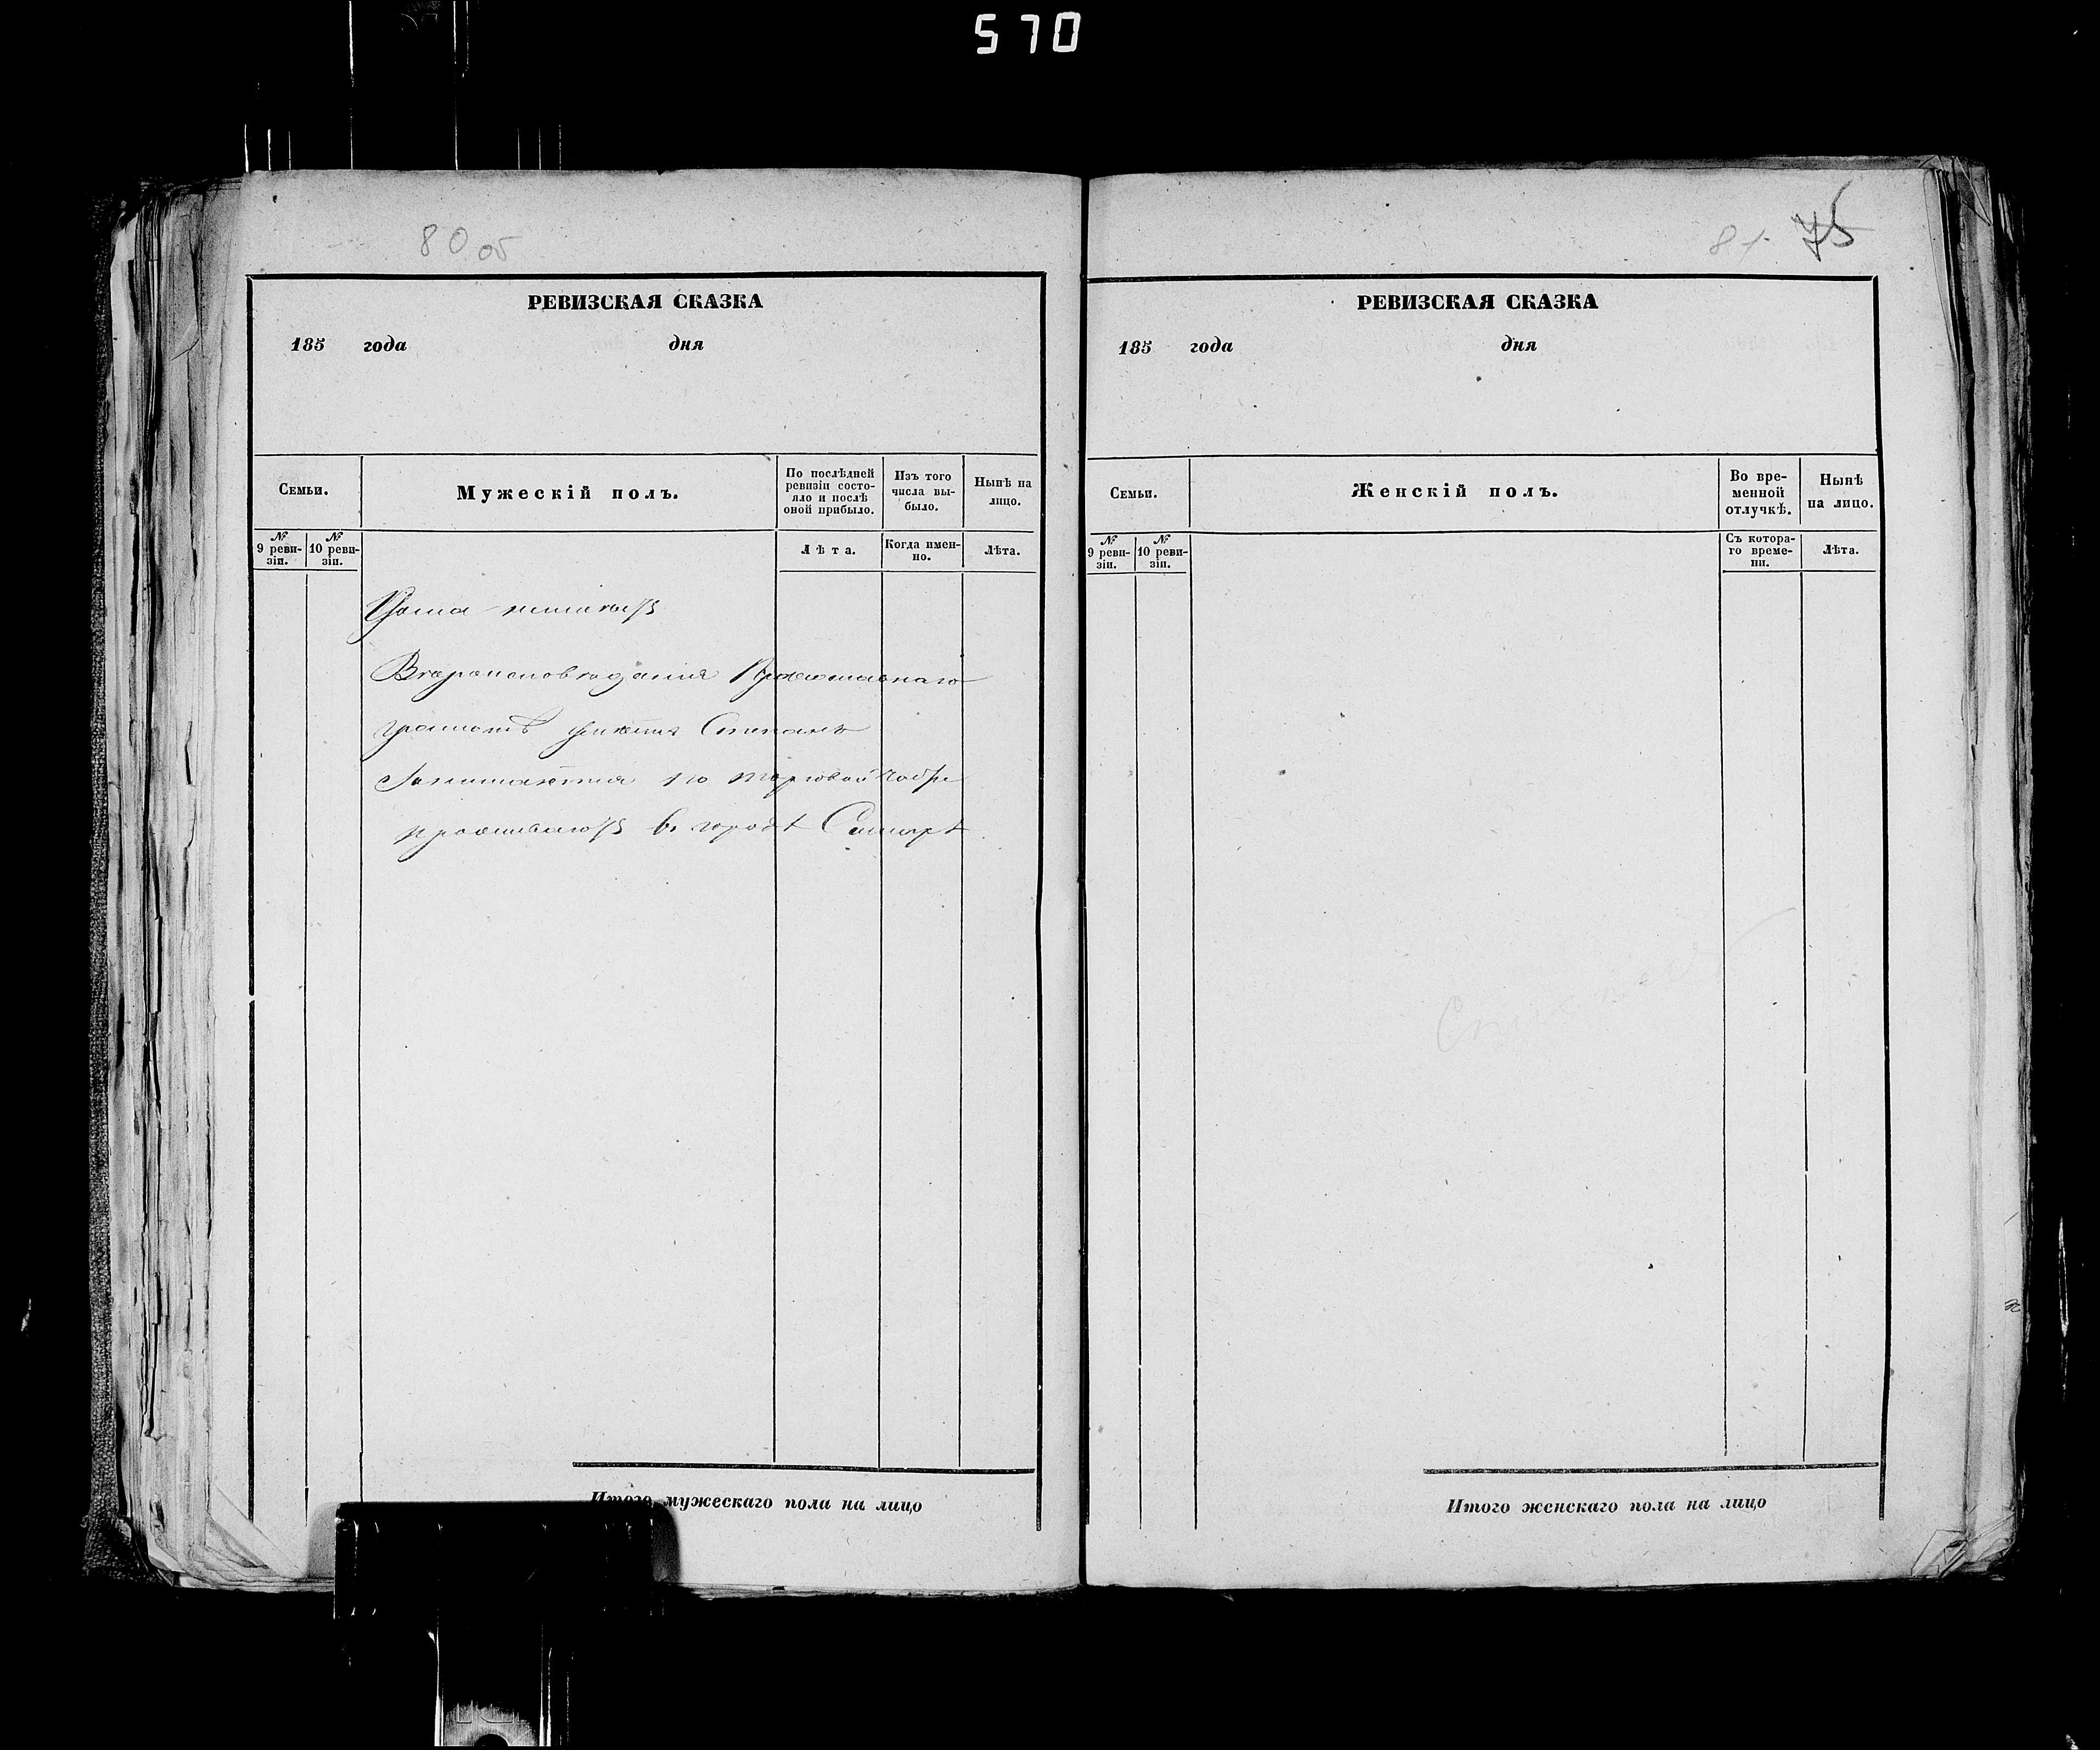 570
80 об
РЕВИЗСКАЯ СКАЗКА
185 года дня
Семьи.
Мужескій полъ.
По послѣдней ревизіи состояло и послѣ оной прибыло.
Изъ того числа выбыло.
Нынѣ на лицо.
№ 9 ревизіи.
№ 10 ревизіи.
Лѣта.
Когда именно.
Лѣта.
Дома неимеютъ
Вѣроисповѣданія Православнаго
грамотѣ Степанъ
Занимается по торговой
проживаютъ въ городѣ Самарѣ
Итого мужескаго пола на лицо
81. 75
РЕВИЗСКАЯ СКАЗКА
185 года дня
Семьи.
Женскій полъ.
Во временной отлучкѣ.
Нынѣ на лицо.
№ 9 ревизіи.
№ 10 ревизіи.
Съ котораго времени.
Лѣта.
Итого женскаго пола на лицо